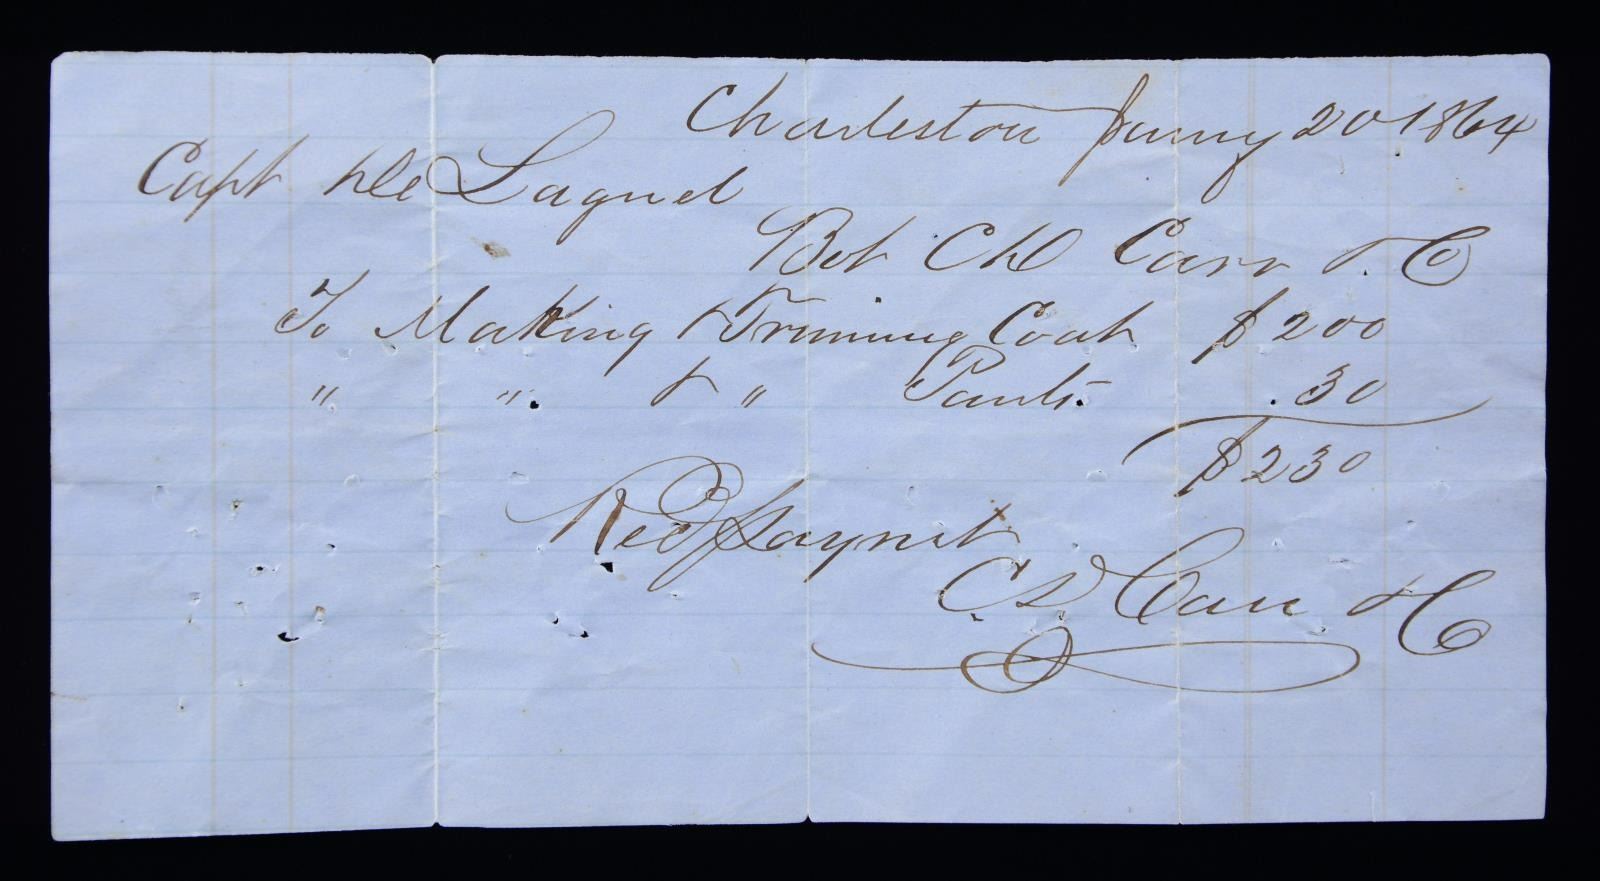 Charleston Jany 20 1864
Capt de Lagnel
Bot C D Carr & Co
To Making & Trimming Coat $200
" " & " Pants 30
$230
Recd Paymt
C D Carr & Co